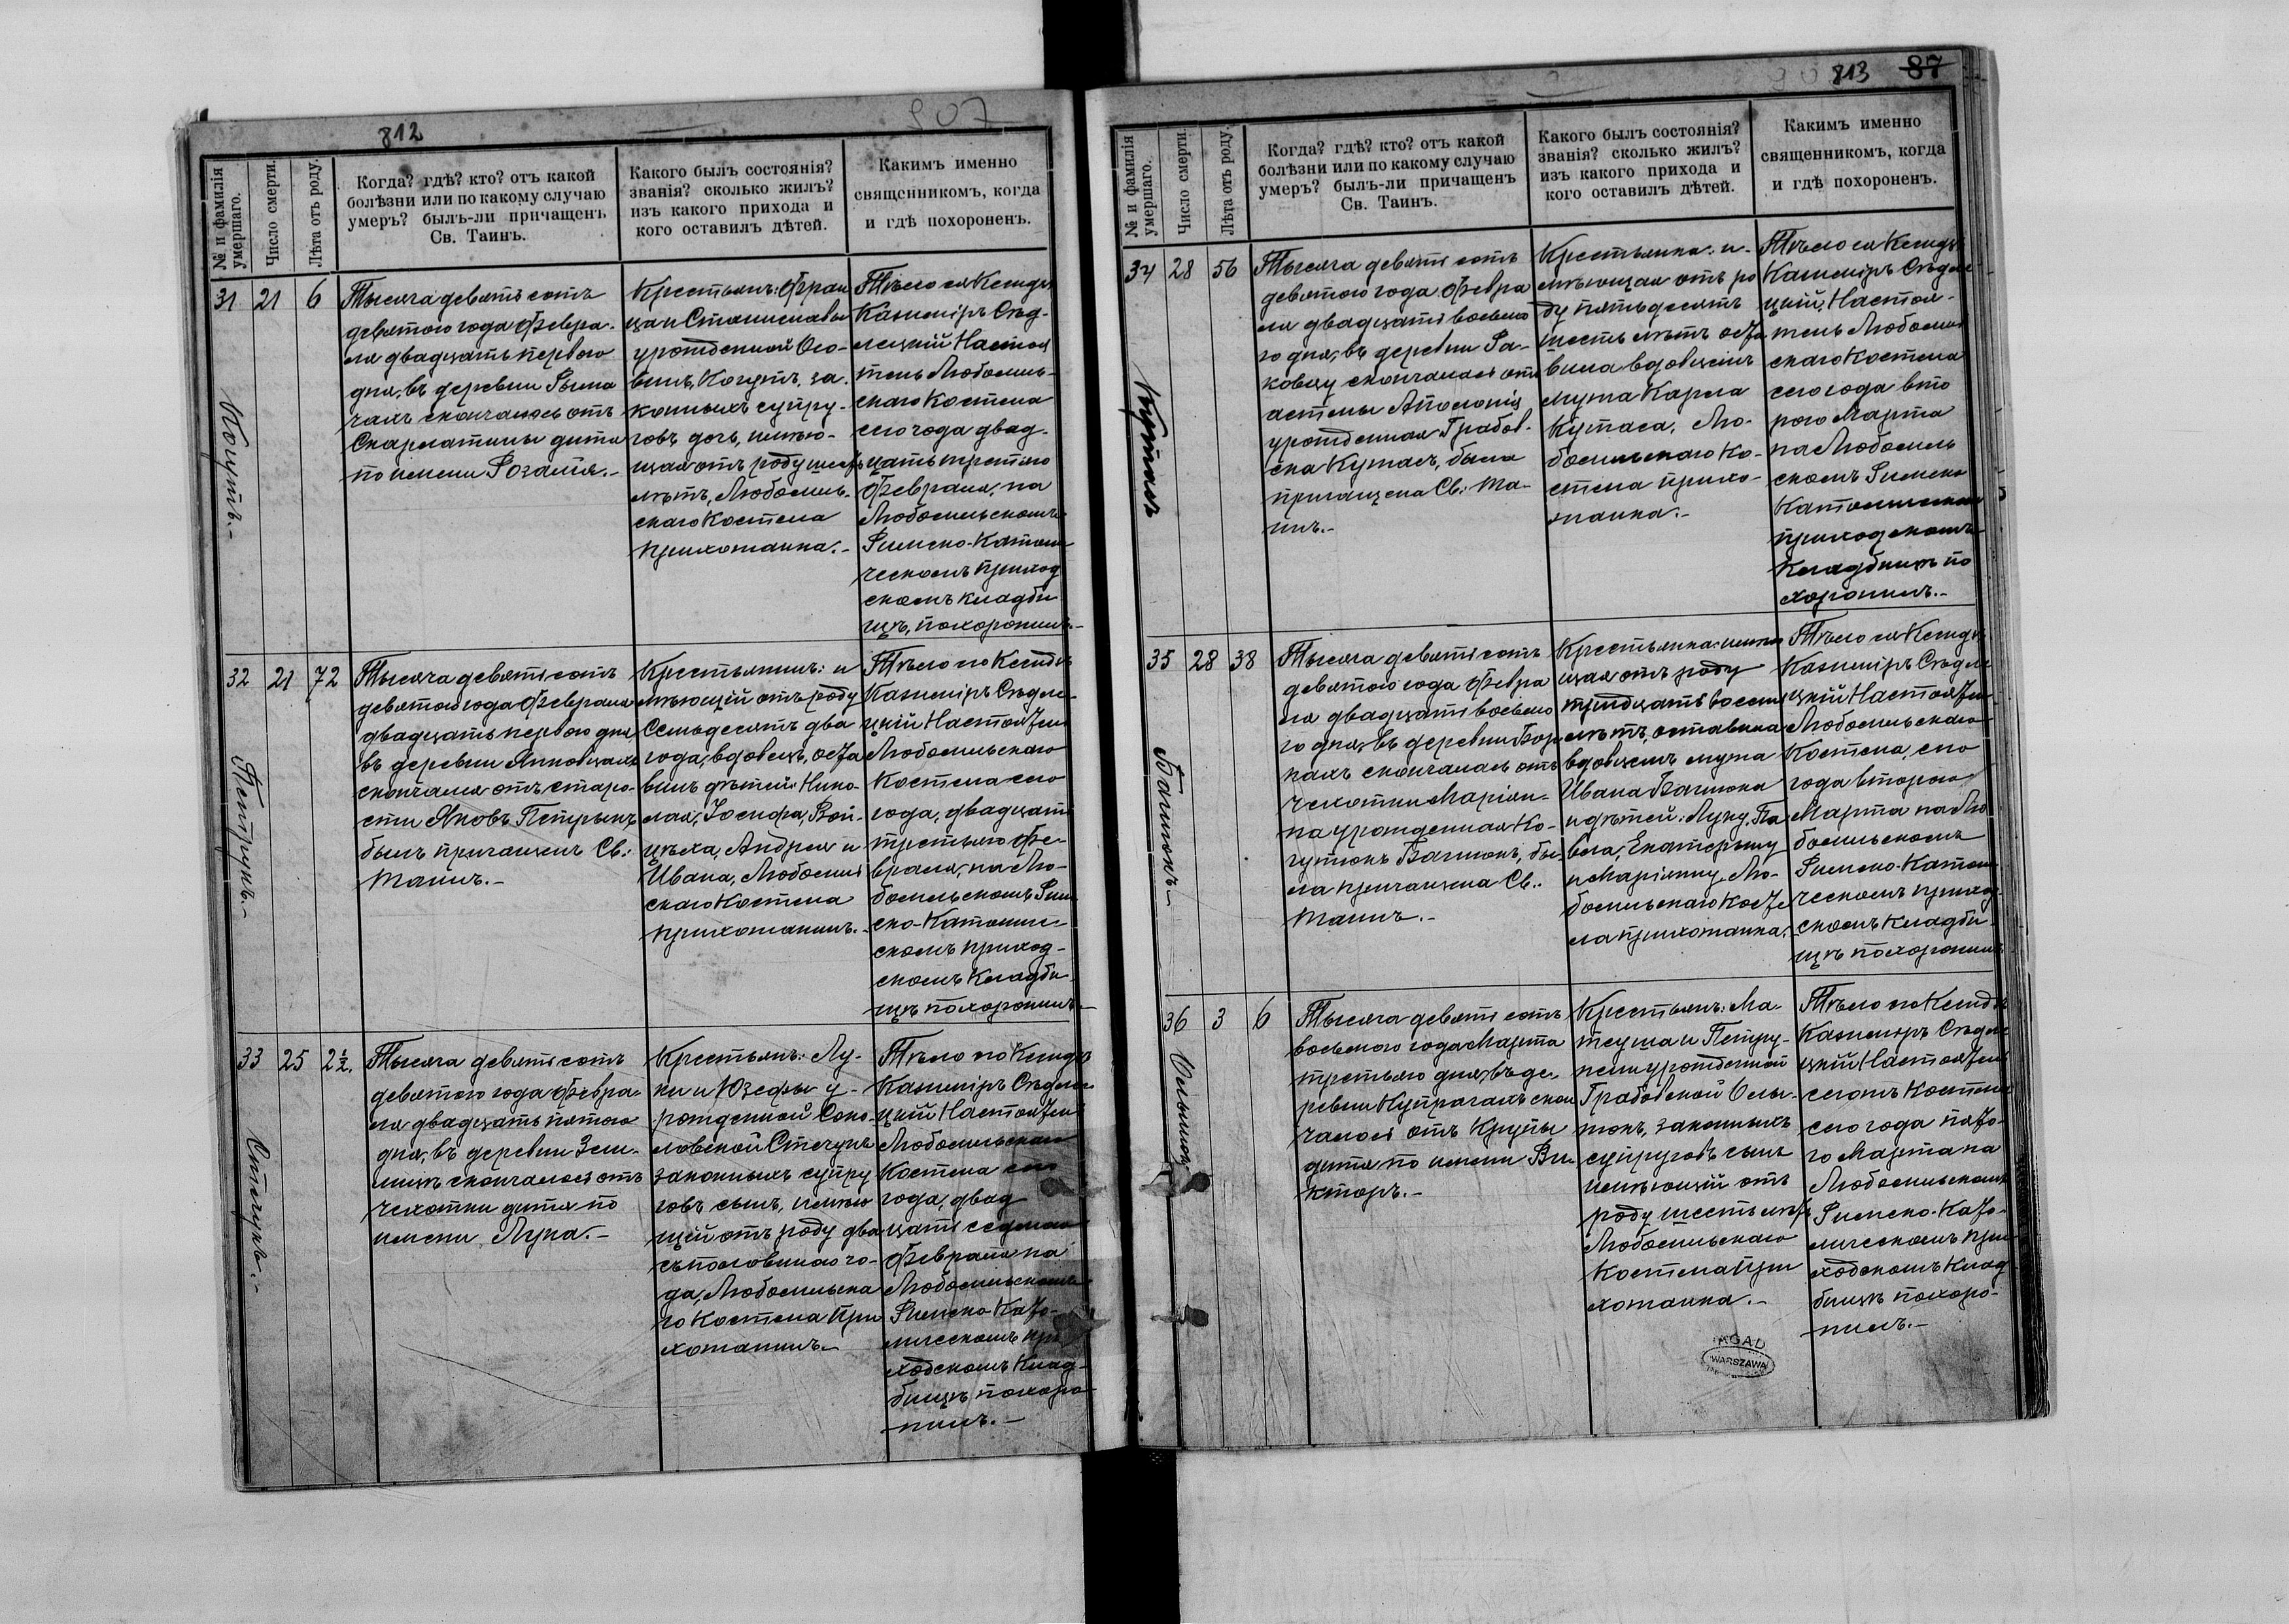 812
907
№ и фамилія
умершаго.
Число смерти.
Лѣта отъ роду.
Когда? гдѣ? кто? отъ какой
болѣзни или по какому случаю
умеръ? былъ-ли причащенъ
Св. Таинъ.
Какого былъ состоянія?
званія? сколько жилъ?
изъ какого прихода и
кого оставилъ дѣтей.
Какимъ именно
священникомъ, когда
и гдѣ похороненъ.
31 21 6
Когутъ.-
Тысяча девятьсотъ
девятого года Февра-
ля двадцать первого
дня, въ деревни Рыма
чахъ скончалось отъ
Скарлатины дитя
по имени Розалія.-
Крестьянъ: Фран
ца и Станиславы
урожденной Осо-
Когутъ, за-
конныхъ супру-
говъ дочь, имѣю-
щая отъ роду шесть
лѣтъ, Любомль-
скаго Костела
прихожанка.-
Тѣло ея Ксендзъ
Казиміръ Сѣд-
лецкій Настоя
тель Любомль-
скаго Костела
сего года двад-
цать третьяго
Февраля, на
Любомльскомъ
Римско-Католи
ческомъ приход
скомъ кладби
щѣ, похоронилъ.-
32 21 72
Петрукъ.-
Тысяча девятьсотъ
девятого года Февраля
двадцать первого дня
въ деревни Янковцахъ
скончался отъ старо-
сти Яковъ Петрукъ,
былъ причащенъ Св:
Таинъ.-
Крестьянинъ: и
мѣющій отъ роду
Семьдесятъ два
года, вдовецъ, оста
вилъ дѣтей: Нико-
лая, Іосифа, Вой-
цѣха, Андрея и
Ивана, Любомль
скаго Костела
прихожанинъ.-
Тѣло его Ксендзъ
Казиміръ Сѣдле-
цкій Настоятель
Любомльскаго
Костела сего
года, двадцать
третьяго Фе-
враля, на Лю-
бомльскомъ Рим
ско-Католиче
скомъ приход-
скомъ Кладби-
щѣ похоронилъ.-
33 25 2½.
Стецукъ.-
Тысяча девятьсотъ
девятого года Февра-
ля двадцать пятого
дня, въ деревни Зем-
лицѣ скончалося отъ
чехотки дитя по
имени Лука.-
Крестьянъ: Лу-
ки и Юзефы у-
рожденной Соко-
ловской Стецукъ
законныхъ супру
говъ сынъ, имѣю
щій отъ роду два
съ половиною го-
да, Любомльска
го Костела при
хожанинъ.-
Тѣло его Ксендзъ
Казиміръ Сѣдле-
цкій Настоятель
Любомльскаго
Костела сего
года, двад
цать седьмого
Февраля на
Любомльскомъ
Римско-Като-
лическомъ при
ходскомъ Клад-
бищѣ похоро-
нилъ.-
813 87
№ и фамилія
умершаго.
Число смерти.
Лѣта отъ роду.
Когда? гдѣ? кто? отъ какой
болѣзни или по какому случаю
умеръ? былъ-ли причащенъ
Св. Таинъ.
Какого былъ состоянія?
званія? сколько жилъ?
изъ какого прихода и
кого оставилъ дѣтей.
Какимъ именно
священникомъ, когда
и гдѣ похороненъ.
34 28 56
Кутась
Тысяча девятьсотъ
девятого года Февра
ля двадцать восьмо
го дня, въ деревни Ра-
ковцу скончалась отъ
астмы Аполонія
урожденная Грабов-
ска Кутась, была
причащена Св: Та-
инъ.-
Крестьянка: и-
мѣющая отъ ро
ду пятьдесятъ
шесть лѣтъ оста
вила вдовцемъ
мужа Карла
Кутаса, Лю-
бомльскаго Ко-
стела прихо-
жанка.-
Тѣло ея Ксендзъ
Казиміръ Сѣдле-
цкій, Настоя-
тель Любомль
скаго Костела
сего года вто
рого Марта
на Любомль
скомъ Римско
Католическомъ
приходскомъ
Кладбищѣ по
хоронилъ.-
35 28 38
Багнюкъ.-
Тысяча девятьсотъ
девятого года Февра
ля двадцать восьмо
го дня, въ деревни Бор
кахъ скончалась отъ
чехотки Маріан-
на урожденная Ко-
гутюкъ Багнюкъ, бы-
ла причащена Св:
Таинъ.-
Крестьянка: имѣю
щая отъ роду
тридцать восемь
лѣтъ, оставила
вдовцемъ мужа
Ивана Багнюка
и дѣтей: Луку, Па
вла, Екатерину
и Маріанну, Лю-
бомльскаго Косте
ла прихожанка.
Тѣло ея Ксендзъ
Казиміръ Сѣдле
цкій Настоятель
Любомльскаго
Костела, сего
года второго
Марта на Лю
бомльскомъ
Римско-Католи
ческомъ приход-
скомъ Кладби-
щѣ похоронилъ
36 3 6
Тысяча девятьсотъ
восьмого года Марта
третьяго дня, въ де-
ревни Купрачахъ скон
чалось отъ Крупы
дитя по имени Ви-
кторъ.-
Крестьянъ: Ма-
теуша и Петру-
нели урожденной
Грабовской
законныхъ
супруговъ сынъ
имѣющій отъ
роду шесть лѣтъ
Любомльскаго
Костела при
хожанка.-
Тѣло его Ксендзъ
Казиміръ Сѣдле
цкій Настоятель
сего года пято-
го Марта на
Любомльскомъ
Римско-Като-
лическомъ при
ходскомъ Клад
бищѣ похоро-
нилъ.-
AGAD
WARSZAWA